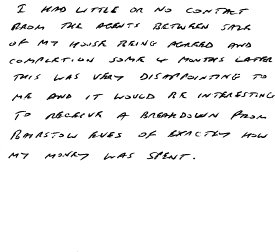 I HAD LITTLE OR NO CONTACT
FROM THE AGENTS BETWEEN SALE
OF MY HOUSE BEING AGREED AND
COMPLETION SOME 4 MONTHS LATER
THIS WAS VERY DISAPPOINTING TO
ME AND IT WOULD BE INTERESTING
TO RECEIVE A BREAKDOWN FROM
BAIRSTOW EVES OF EXACTLY HOW
MY MONEY WAS SPENT.